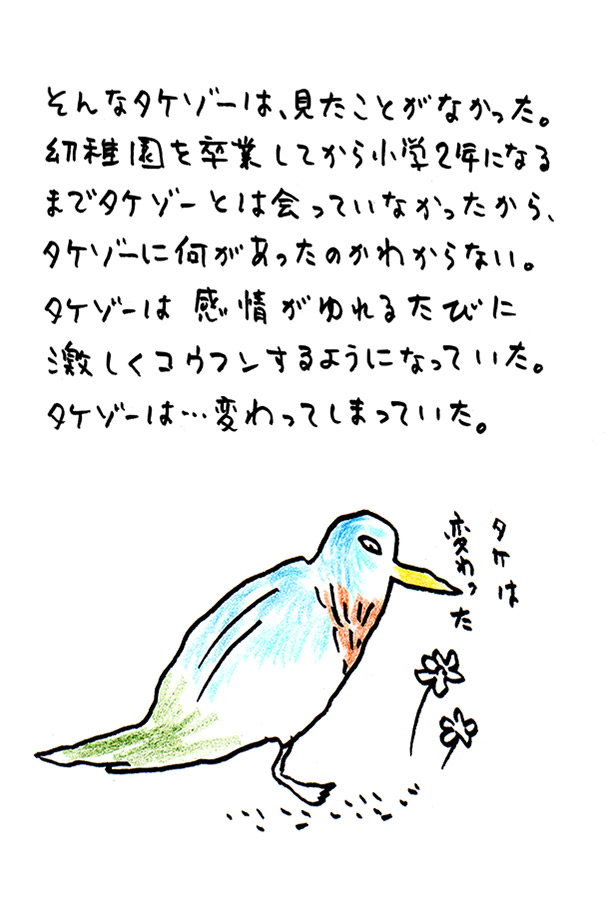 そんなタケゾーは、見たことがなかった。
幼稚園を卒業してから小学2年になる
までタケゾーとは会っていなかったから、
タケゾーに何があったのかわからない。
タケゾーは 感情がゆれるたびに
激しくコウフンするようになっていた。
タケゾーは…変わってしまっていた。
タケは
変わった